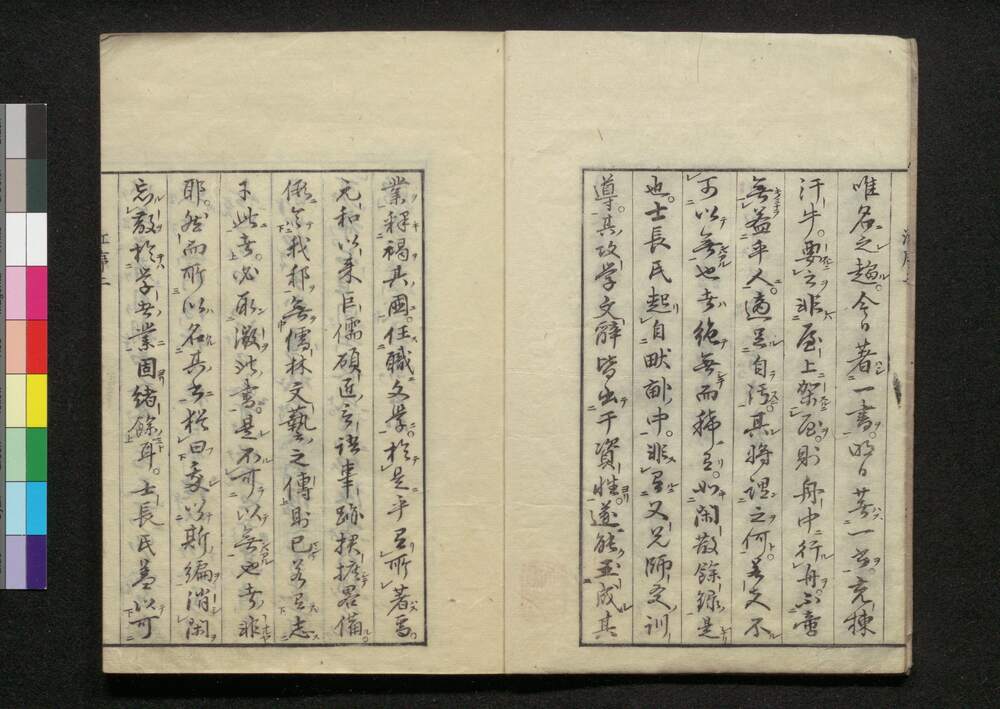 唯名之趨今日著一書明日著一書充棟
汗牛要之非屋上架屋則舟中行舟不啻
無益乎人適足自汚其將謂之何若夫不
可以無也者絶無而稀有如閑散餘録是
也士長民起自畎畝中非有父兄師友訓
導其攻学文辭皆出于資性遂能玉成其
業釋褐其國任職文學於是乎有所著焉
元和以来巨儒碩匠言語事跡摭摭畧備
儻令我邦無儒林文藝之傳則已若有志
于此者必取徴此書是不可以無也者非
耶然而所以名其書猶曰交以斯編消閑
忘散於学者業固緒餘耳士長民蓋以可